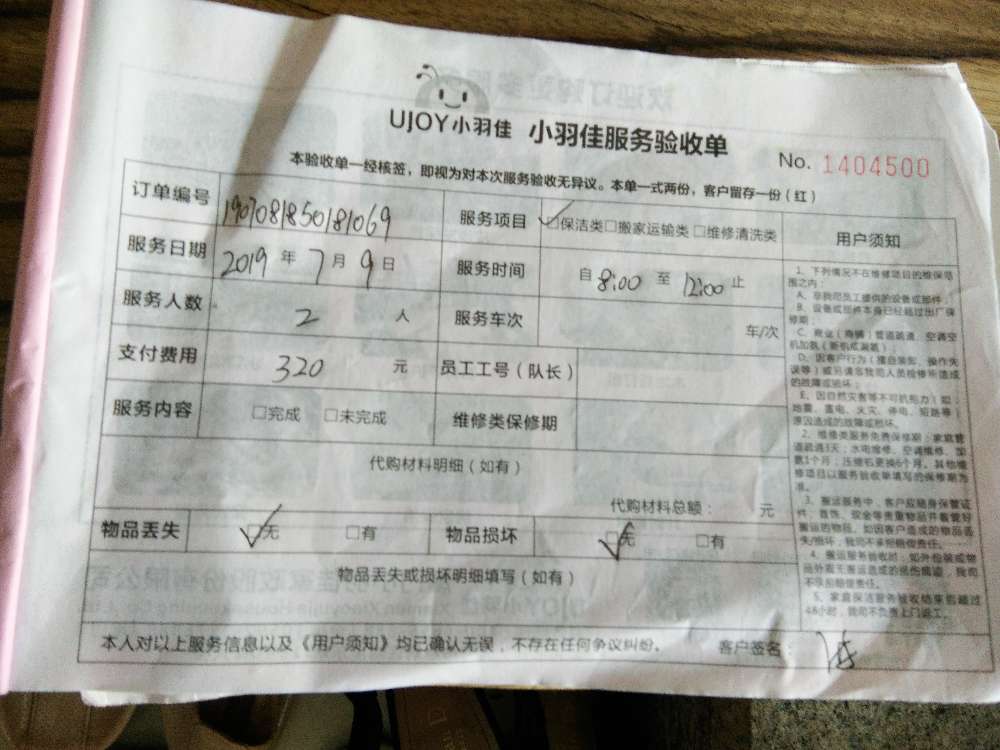 UJOY小羽佳 小羽佳服务验收单
No. 1404500
本验收单一经核签，即视为对本次服务验收无异议。本单一式两份，客户留存一份（红）
订单编号 190708185018​1069 服务项目 ☑保洁类□搬家运输类 □维修清洗类
服务日期 2019 年 7 月 9 日 服务时间 自 8:00 至 12:00 止
服务人数 2 人 服务车次 车/次
支付费用 320 元 员工工号（队长）
服务内容 □完成 □未完成 维修类保修期
代购材料明细（如有）
代购材料总额： 元
物品丢失 ☑无 □有 物品损坏 ☑无 □有
物品丢失或损坏明细填写（如有）
本人对以上服务信息以及《用户须知》均已确认无误，不存在任何争议纠纷。 客户签名：
用户须知
1、下列情况不在维修项目的维保范
围之内：
A、非我司员工提供的设备或部件；
B、设备或部件本身已经超过出厂保
修期；
C、商业（商铺）管道疏通、空调空
机加氨（新机或漏氨）；
D、因客户行为（擅自装卸、操作失
误等）或另请非我司人员检修所造成
的故障或损坏；
E、因自然灾害等不可抗力（如：
地震、雷电、火灾、停电、短路等）
原因造成的故障或损坏。
2、维修类服务免费保修期：家庭管
道疏通3天；水电维修、空调维修、加
氨1个月；压缩机更换6个月。其他维
修项目以服务验收单填写的保修期为
准。
3、搬运服务中，客户应随身保管证
件、首饰、现金等贵重物品并看管好
搬运的物品，如因客户造成的物品丢
失/损坏，我司不承担赔偿责任。
4、搬运服务验收时，如外包装或物
品外观无搬运造成的损伤痕迹，我司
不承担赔偿责任。
5、家庭保洁服务验收结束后超过
48小时，我司不负责上门返工。